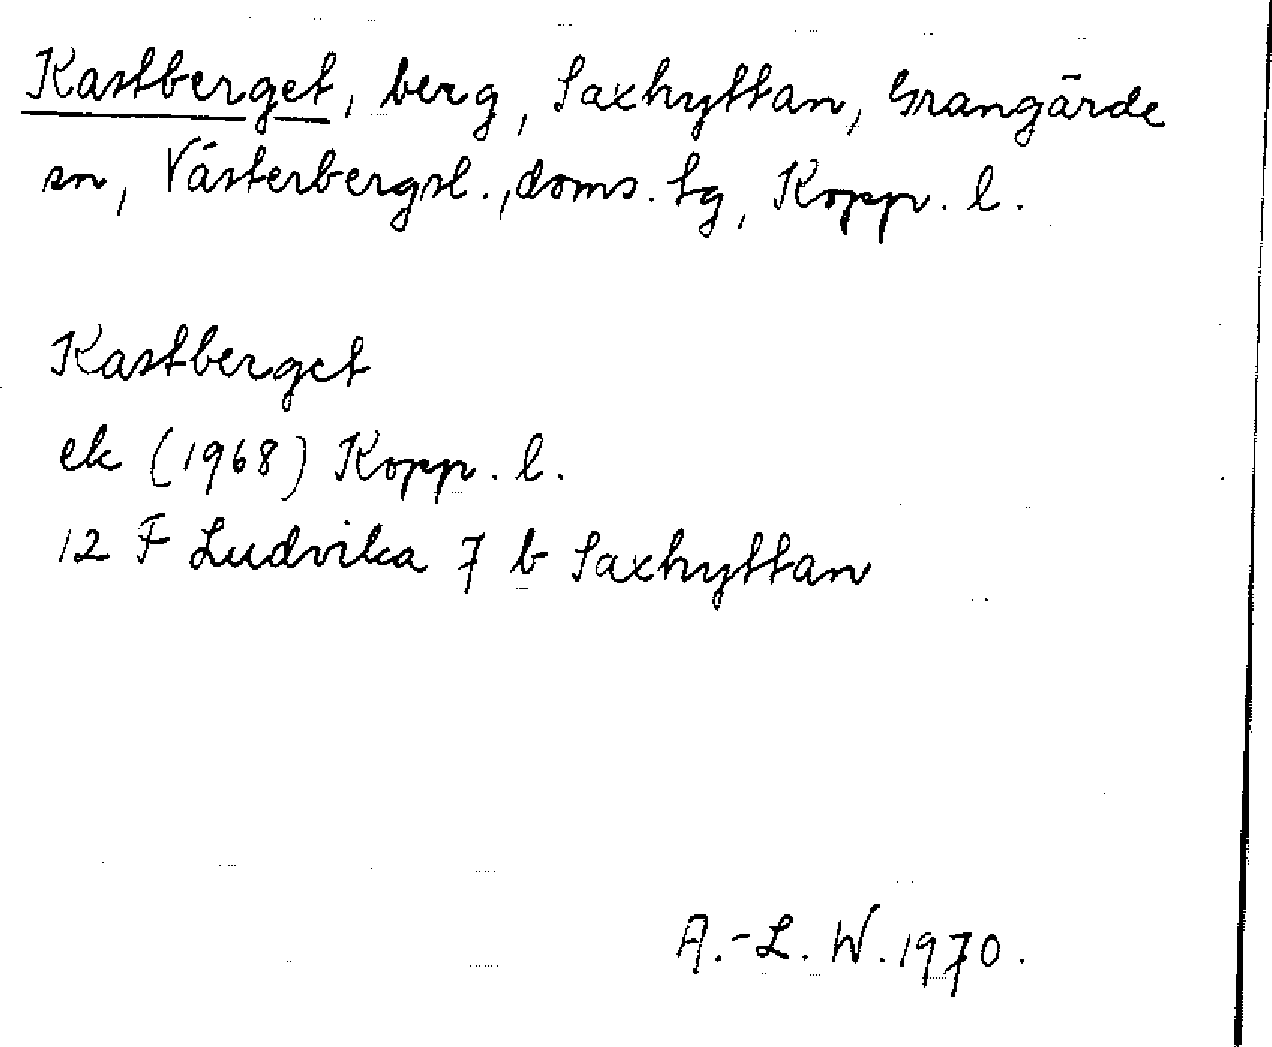 Kastberget, berg, Saxhyttan, Grangärde
sn, Västerbergsl., doms. tg, Kopp. l.
Kastberget
ek (1968) Kopp. l.
12 F Ludvika 7 b Saxhyttan
A.-L. W. 1970.